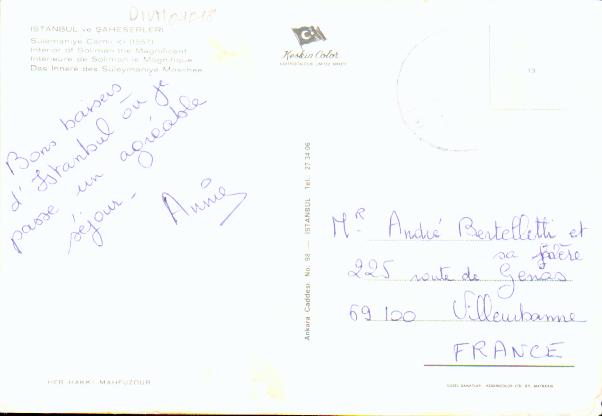 DIV1101018
ISTANBUL ve ŞAHESERLERİ
Süleymaniye Camii içi (1557)
Interior of Soliman the Magnificent
Interieure de Soliman le Magnifique
Das Innere des Süleymaniye Moschee
Bons baisers
d'Istanbul où je
passe un agréable
séjour -
Annie
HER HAKKI MAHFUZDUR
Keskin Color
Ankara Caddesi No. 98 — ISTANBUL Tel. 27 34 06
13
Mr André Bertelletti et
sa
225 route de Genas
69100 Villeurbanne
FRANCE